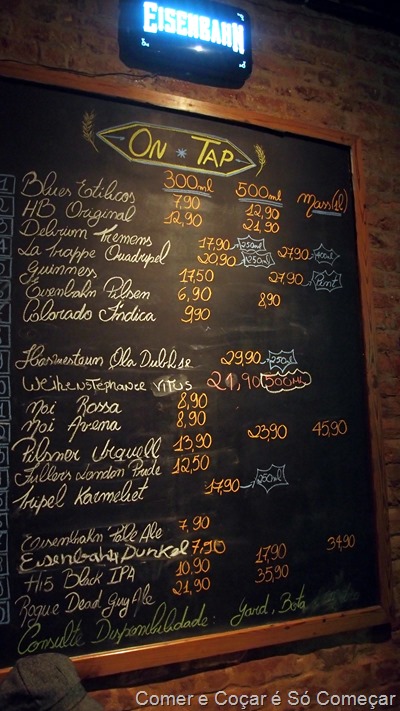 EISENBAHN
ON TAP
300ml 500ml Mass(1L)
Blues Etílicos 7,90 12,90
HB Original 12,90 21,90
Delirium Tremens 17,90 250ml 27,90 400ml
La Trappe Quadrupel 20,90 250ml
Guinness 17,50 27,90 Pint
Eisenbahn Pilsen 6,90 8,90
Colorado Indica 9,90
Ola Dubh 29,90 250ml
Weihenstephaner VITUS 21,90 500ML
Noi Rossa 8,90
Noi Avena 8,90
Pilsner Urquell 13,90 23,90 45,90
Fuller's London Pride 12,50
Tripel Karmeliet 17,90 250ml
Eisenbahn Pale Ale 7,90
Eisenbahn Dunkel 7,90
Black IPA 10,90 17,90 34,90
Rogue Dead Guy Ale 21,90 35,90
Consulte Disponibilidade: Yard, Bota
Comer e Coçar é Só Começar